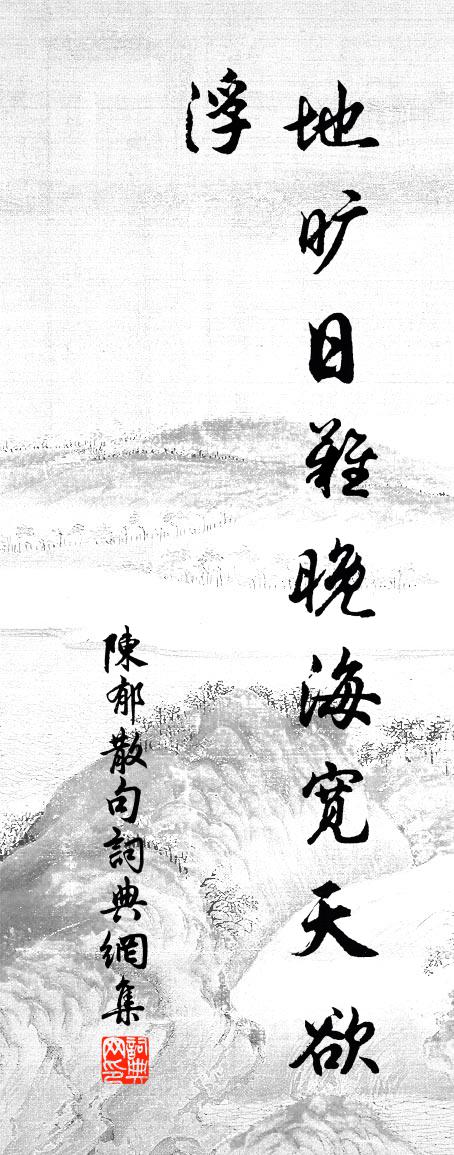 地旷日難晚海寬天欲
浮
陳郁散句詞典網集
詞典网印